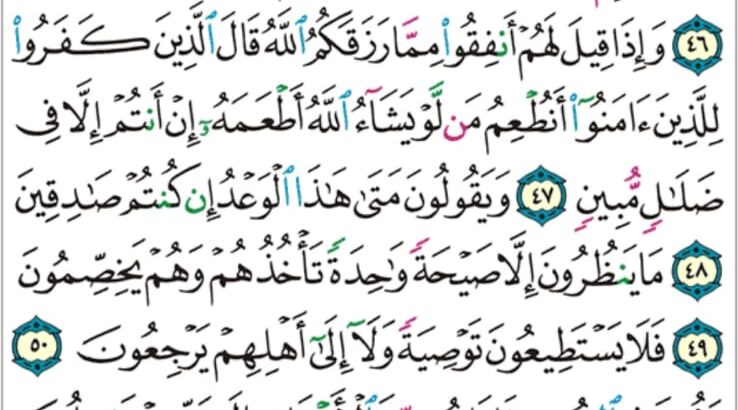 ٤٦ وَإِذَا قِيلَ لَهُمْ أَنفِقُوا۟ مِمَّا رَزَقَكُمُ ٱللَّهُ قَالَ ٱلَّذِينَ كَفَرُوا۟
لِلَّذِينَ ءَامَنُوٓا۟ أَنُطْعِمُ مَن لَّوْ يَشَآءُ ٱللَّهُ أَطْعَمَهُۥٓ إِنْ أَنتُمْ إِلَّا فِى
ضَلَـٰلٍ مُّبِينٍ ٤٧ وَيَقُولُونَ مَتَىٰ هَـٰذَا ٱلْوَعْدُ إِن كُنتُمْ صَـٰدِقِينَ
٤٨ مَا يَنظُرُونَ إِلَّا صَيْحَةً وَٰحِدَةً تَأْخُذُهُمْ وَهُمْ يَخِصِّمُونَ
٤٩ فَلَا يَسْتَطِيعُونَ تَوْصِيَةً وَلَآ إِلَىٰٓ أَهْلِهِمْ يَرْجِعُونَ ٥٠